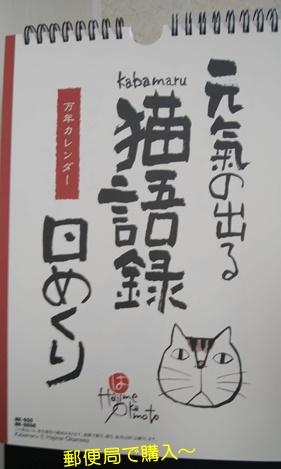 元氣の出る
kabamaru
猫語録
日めくり
万年カレンダー
は
Hajime
Okamoto
Kabamaru © Hajime Okamoto
郵便局で購入～